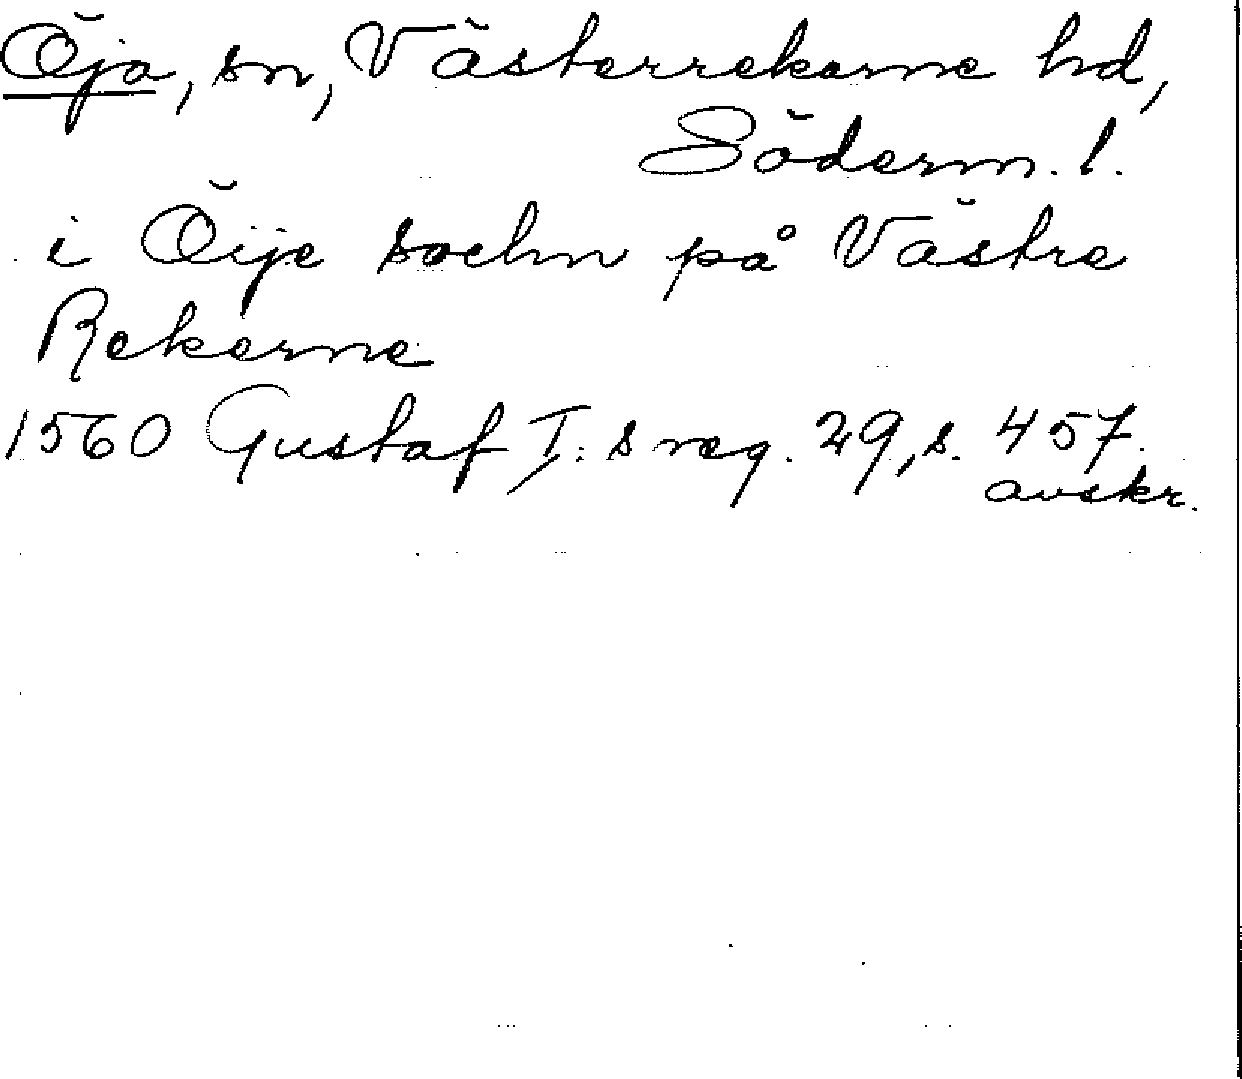 Öja, sn, Västerrekarne hd,
Söderm. l.
i Öije sochn på Västre
Rekarne
1560 Gustaf I:s reg. 29, s. 457.
avskr.